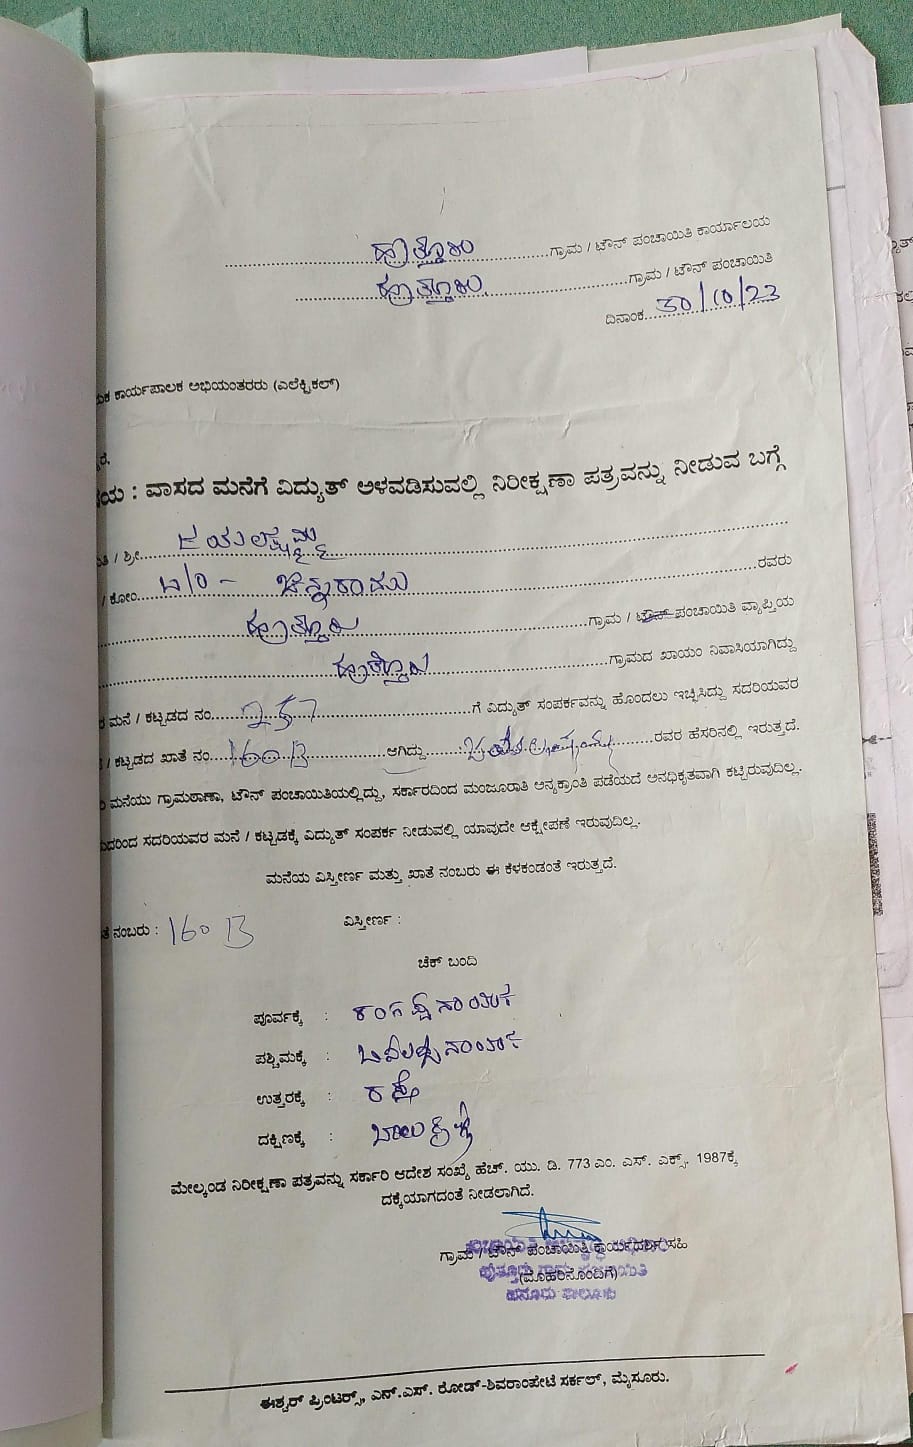 ಹೂತ್ತೂರು ಗ್ರಾಮ / ಟೌನ್ ಪಂಚಾಯಿತಿ ಕಾರ್ಯಾಲಯ
ಹೂತ್ತೂರು ಗ್ರಾಮ / ಟೌನ್ ಪಂಚಾಯಿತಿ
ದಿನಾಂಕ 30/10/23
ಕಾರ್ಯಪಾಲಕ ಅಭಿಯಂತರರು (ಎಲೆಕ್ಟ್ರಿಕಲ್)
: ವಾಸದ ಮನೆಗೆ ವಿದ್ಯುತ್ ಅಳವಡಿಸುವಲ್ಲಿ ನಿರೀಕ್ಷಣಾ ಪತ್ರವನ್ನು ನೀಡುವ ಬಗ್ಗೆ
/ ಶ್ರೀ ಜಯಲಕ್ಷ್ಮಮ್ಮ
/ ಕೋಂ ರವರು
ಹೂತ್ತೂರು ಗ್ರಾಮ / ಟೌನ್ ಪಂಚಾಯಿತಿ ವ್ಯಾಪ್ತಿಯ
ಹೂತ್ತೂರು ಗ್ರಾಮದ ಖಾಯಂ ನಿವಾಸಿಯಾಗಿದ್ದು
ಮನೆ / ಕಟ್ಟಡದ ನಂ. 257 ಗೆ ವಿದ್ಯುತ್ ಸಂಪರ್ಕವನ್ನು ಹೊಂದಲು ಇಚ್ಛಿಸಿದ್ದು ಸದರಿಯವರ
/ ಕಟ್ಟಡದ ಖಾತೆ ನಂ. 160 B ಆಗಿದ್ದು ರವರ ಹೆಸರಿನಲ್ಲಿ ಇರುತ್ತದೆ.
ಮನೆಯು ಗ್ರಾಮಠಾಣಾ, ಟೌನ್ ಪಂಚಾಯಿತಿಯಲ್ಲಿದ್ದು, ಸರ್ಕಾರದಿಂದ ಮಂಜೂರಾತಿ ಅನ್ಯಕ್ರಾಂತಿ ಪಡೆಯದೆ ಅನಧಿಕೃತವಾಗಿ ಕಟ್ಟಿರುವುದಿಲ್ಲ.
ಸದರಿಯವರ ಮನೆ / ಕಟ್ಟಡಕ್ಕೆ ವಿದ್ಯುತ್ ಸಂಪರ್ಕ ನೀಡುವಲ್ಲಿ ಯಾವುದೇ ಆಕ್ಷೇಪಣೆ ಇರುವುದಿಲ್ಲ.
ಮನೆಯ ವಿಸ್ತೀರ್ಣ ಮತ್ತು ಖಾತೆ ನಂಬರು ಈ ಕೆಳಕಂಡಂತೆ ಇರುತ್ತದೆ.
ನಂಬರು : 160 B ವಿಸ್ತೀರ್ಣ :
ಚೆಕ್ ಬಂದಿ
ಪೂರ್ವಕ್ಕೆ :
ಪಶ್ಚಿಮಕ್ಕೆ :
ಉತ್ತರಕ್ಕೆ : ರಸ್ತೆ
ದಕ್ಷಿಣಕ್ಕೆ :
ಮೇಲ್ಕಂಡ ನಿರೀಕ್ಷಣಾ ಪತ್ರವನ್ನು ಸರ್ಕಾರಿ ಆದೇಶ ಸಂಖ್ಯೆ ಹೆಚ್. ಯು. ಡಿ. 773 ಎಂ. ಎಸ್. ಎಕ್ಸ್. 1987ಕ್ಕೆ
ದಕ್ಕೆಯಾಗದಂತೆ ನೀಡಲಾಗಿದೆ.
ಗ್ರಾಮ / ಟೌನ್ ಪಂಚಾಯಿತಿ ಕಾರ್ಯದರ್ಶಿ ಸಹಿ
(ಮೊಹರಿನೊಂದಿಗೆ)
ಹನೂರು ತಾಲೂಕು
ಈಶ್ವರ್ ಪ್ರಿಂಟರ್ಸ್, ಎನ್.ಎಸ್. ರೋಡ್-ಶಿವರಾಂಪೇಟೆ ಸರ್ಕಲ್, ಮೈಸೂರು.